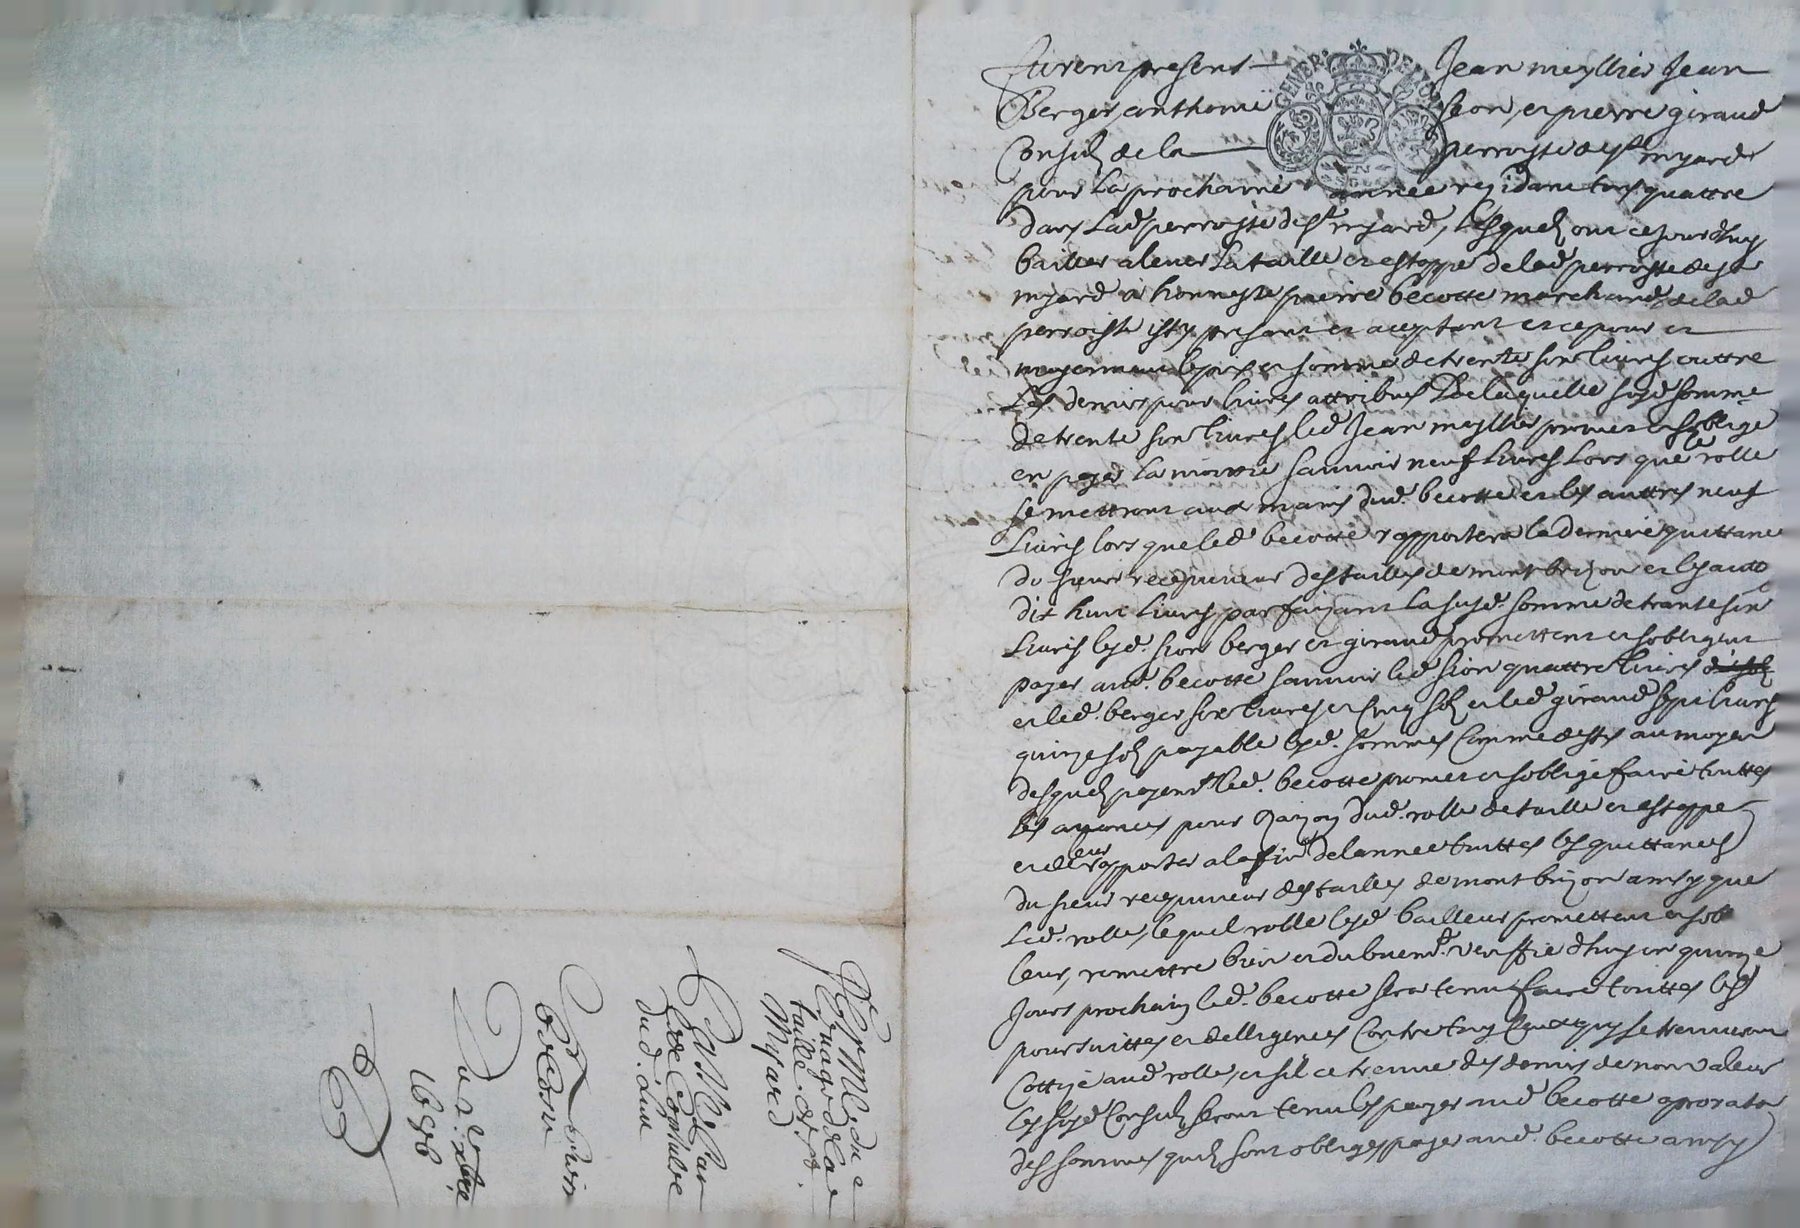 Furent present Jean meyllier Jean
Berger, anthoine sion, et pierre giraud
Consulz de la perroisse de st myard
pour la prochaine année residant tous quattre
dans lad perroisse de st myard, lesquelz ont cejourdhuy
bailler alever la taille et estappe de lad perroisse de st
myard a honneste pierre becotte marchand de lad
perroisse isty present et aceptant et ce pour et
moyennant le prix et somme de trente six livres outtre
Les deniers pour livres attribues De laquelle susd somme
de trente six livres led Jean meyllier promet et soblige
en payer la moittie sauvoir neuf livres lors que le rolle
se mettront aux mains dud. becotte et les auttres neuf
Livres lors que led becotte rapportera la derniere quittance
du sieur recepveur des tailles de montbrizon et les autt
dix huit livres parfaizant la susd. somme de trante six
Livres lesd. sion berger et giraud promettent et sobligent
payer aud. becotte sauvoir led sion quattre livres
et led. berger six livres et cinq solz et led giraud sept livres
quinze solz payable lesd. sommes comme dessus au moyen
desquelz payemt led. becotte promet et soblige faire touttes
les avances pour raizon dud. rolle de taille et estappe
et de leur rapporter a la fin de lannee touttes les quittances
du sieur recepveur des tailles de montbrizon ainsy que
Led. rolle, lequel rolle lesd bailleurs promettent et sob
leur, remettre bien et dubuemt. veriffie dhuy en quinze
Jours prochain led. becotte sera tenu faire touttes les
poursuittes et delligences contre tous ceux quy se trenveront
Cottizé aud rolle, et sil ce trenve des deniers de non valeur
les susd Consulz seront tenu les payer aud becotte a prorata
des sommes quilz sont obligez payer aud. becotte ainsy
de la
taille de st.
Myard
Passé par
dud. lieu
becotte
Du
1696